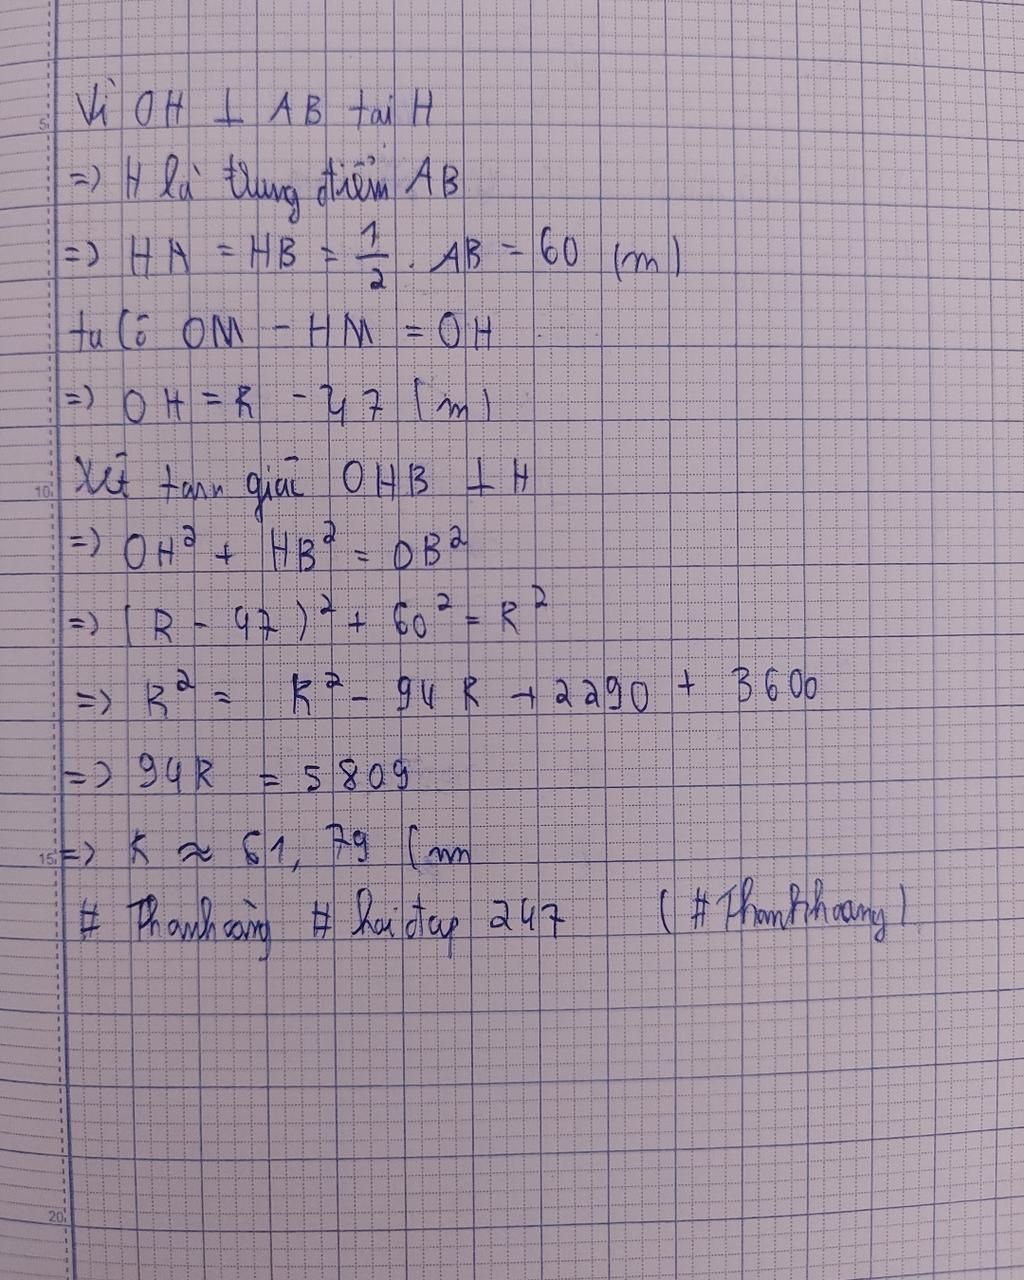 Vì OH ⊥ AB tại H
=> H là trung điểm AB
=> HA = HB = 1/2 . AB = 60 (m)
ta Có OM - HM = OH
=> OH = R - 47 (m)
Xét tam giác OHB ⊥ H
=> OH² + HB² = OB²
=> (R - 47)² + 60² = R²
=> R² = R² - 94R + 2290 + 3600
=> 94R = 5809
=> R ≈ 61,79 (m
# Thanhoang # hoi đap 247 (#Thanhhoang)
5
10
15
20